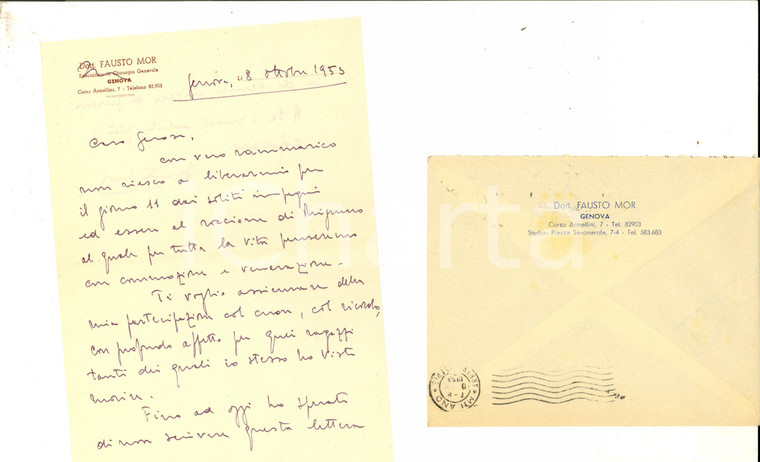 Dott. FAUSTO MOR
Specialista in Chirurgia Generale
GENOVA
Corso Armellini, 7 - Telefono 82.903
Genova, 8 ottobre 1953
Caro
con vero rammarico
non riesco a liberarmi per
il giorno 11 dai soliti impegni
ed essere al raccione di
al quale per tutta la vita penseremo
con commozione e venerazione.
Ti voglio assicurare della
mia partecipazione col cuore, col ricordo,
con profondo affetto per quei ragazzi
tanti dei quali io stesso ho visto
morire.
Fino ad oggi ho sperato
di non scrivere questa lettera
Dott. FAUSTO MOR
GENOVA
Corso Armellini, 7 - Tel. 82903
Studio: Piazza Savonarola, 7-4 - Tel. 583.683
MILANO
charta